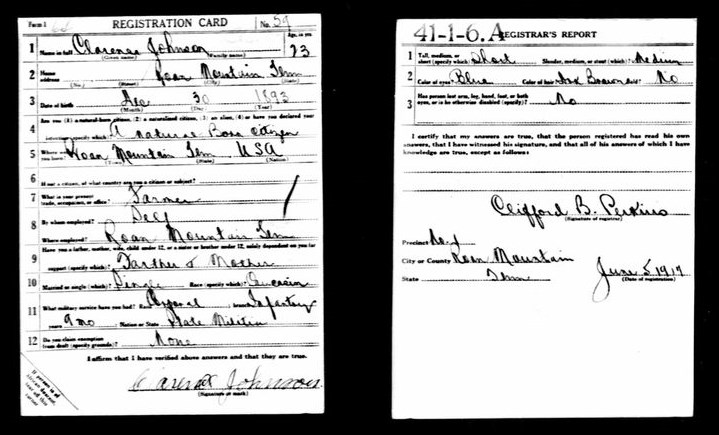 Form 1 REGISTRATION CARD No. 59
1 Name in full Clarence Johnson Age, in yrs. 23
(Given name) (Family name)
2 Home address Roan Mountain Tenn
(No.) (Street) (City) (State)
3 Date of birth Dec 30 1893
(Month) (Day) (Year)
4 Are you (1) a natural-born citizen, (2) a naturalized citizen, (3) an alien, (4) or have you declared your
intention (specify which)? A natural Born citizen
5 Where were you born? Roan Mountain Tenn USA
(Town) (State) (Nation)
6 If not a citizen, of what country are you a citizen or subject?
7 What is your present trade, occupation, or office? Farmer
8 By whom employed? Self
Where employed? Roan Mountain Tenn
9 Have you a father, mother, wife, child under 12, or a sister or brother under 12, solely dependent on you for
support (specify which)? Farther & Mother
10 Married or single (which)? Single Race (specify which)? Caucasian
11 What military service have you had? Rank Corporal branch Infantry
years 9 mo Nation or State State Militia
12 Do you claim exemption from draft (specify grounds)? None
I affirm that I have verified above answers and that they are true.
Clarence Johnson
(Signature or mark)
If person is of African descent, tear off this corner
41-1-6. A REGISTRAR'S REPORT
1 Tall, medium, or short (specify which)? Short Slender, medium, or stout (which)? Medium
2 Color of eyes? Blue Color of hair? Brown Bald? No
3 Has person lost arm, leg, hand, foot, or both eyes, or is he otherwise disabled (specify)? No
I certify that my answers are true, that the person registered has read his own
answers, that I have witnessed his signature, and that all of his answers of which I have
knowledge are true, except as follows:
Clifford B. Perkins
(Signature of registrar)
Precinct No. 1
City or County Roan Mountain
State Tenn June 5, 1917
(Date of registration)